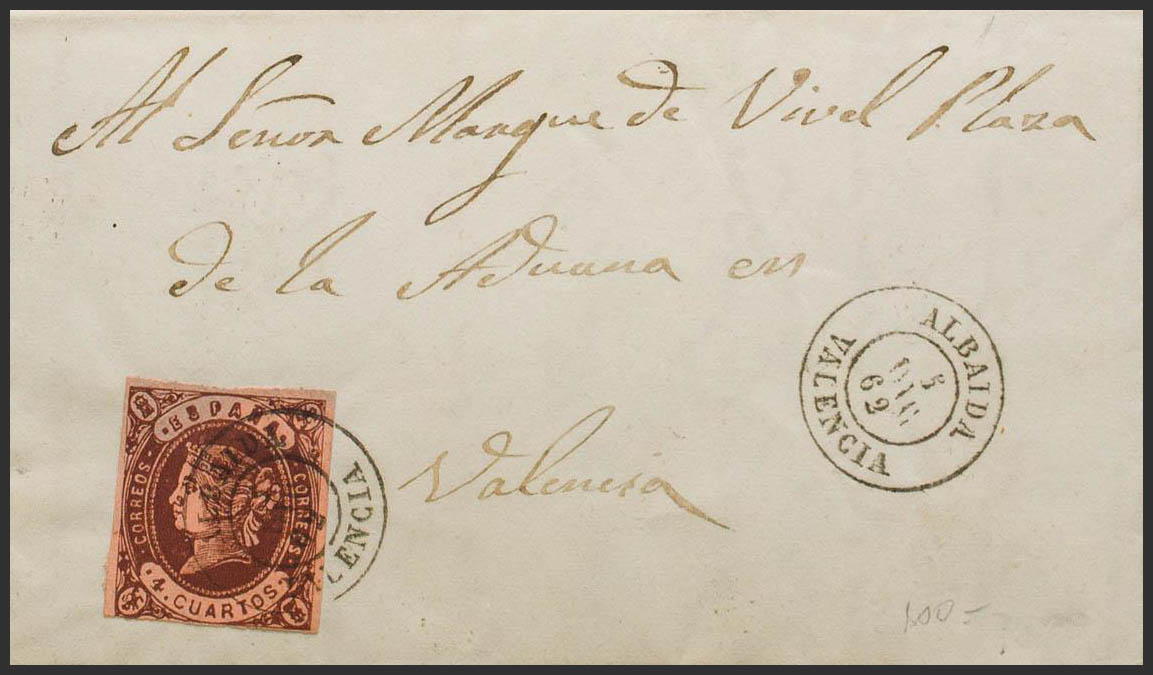 Al Señor Marque de Vivel Plaza
de la Aduana en
Valencia
ALBAIDA
5
DIC
62
VALENCIA
ESPAÑA
CORREOS
CORREOS
4 CUARTOS
ALBAIDA
VALENCIA
100-